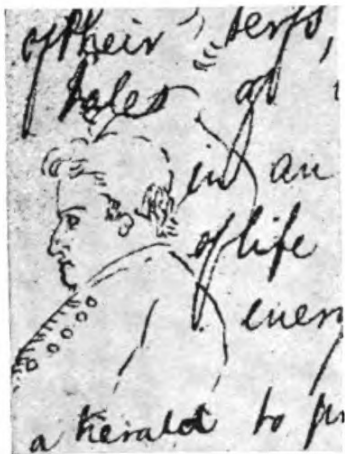 of their serfs,
tales of
in an
of life
a herald to